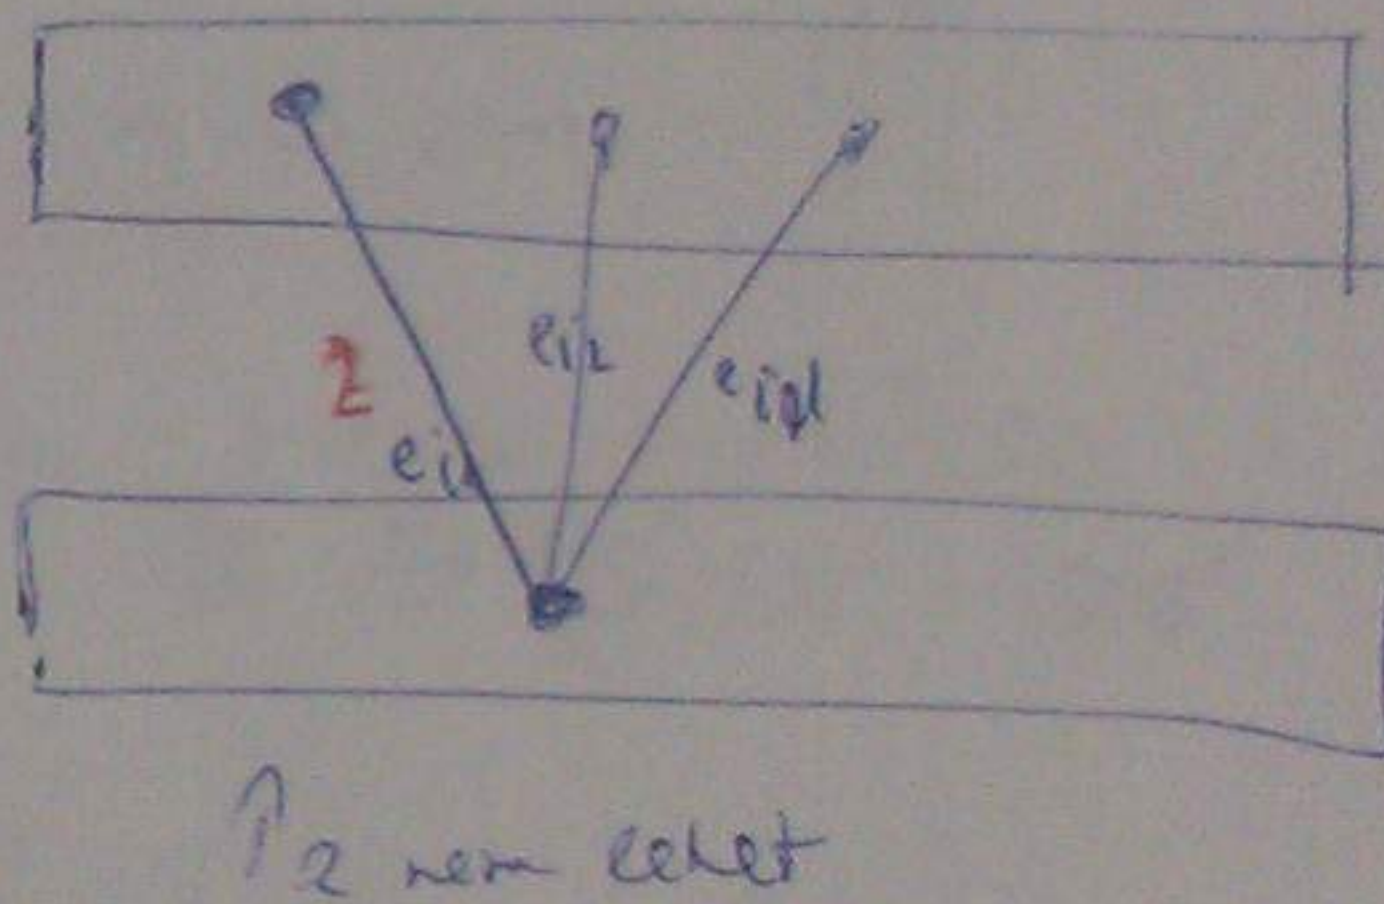 2
e_{i1}
e_{i2}
e_{id}
↑ 2 nem lehet